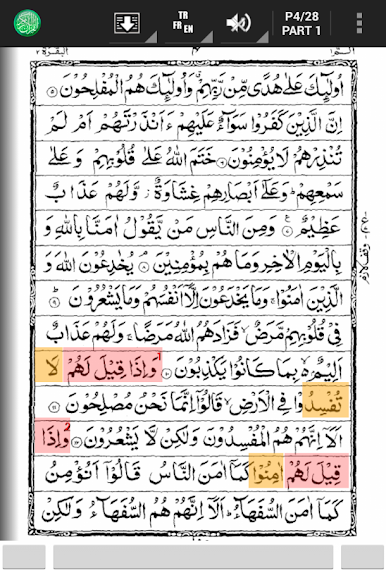 TR
FR EN
P4/28
PART 1
البقرة ٢
٤
الٓمّٓ ١
اُولٰٓئِكَ عَلٰى هُدًى مِّنْ رَّبِّهِمْ وَاُولٰٓئِكَ هُمُ الْمُفْلِحُوْنَ ۵
اِنَّ الَّذِيْنَ كَفَرُوْا سَوَآءٌ عَلَيْهِمْ ءَاَنْذَرْتَهُمْ اَمْ لَمْ
تُنْذِرْهُمْ لَا يُؤْمِنُوْنَ ۶ خَتَمَ اللّٰهُ عَلٰى قُلُوْبِهِمْ وَعَلٰى
سَمْعِهِمْ وَعَلٰٓى اَبْصَارِهِمْ غِشَاوَةٌ وَّلَهُمْ عَذَابٌ
عَظِيْمٌ ۷ وَمِنَ النَّاسِ مَنْ يَّقُوْلُ اٰمَنَّا بِاللّٰهِ وَ
بِالْيَوْمِ الْاٰخِرِ وَمَا هُمْ بِمُؤْمِنِيْنَ ۸ يُخٰدِعُوْنَ اللّٰهَ وَ
الَّذِيْنَ اٰمَنُوْا وَمَا يَخْدَعُوْنَ اِلَّآ اَنْفُسَهُمْ وَمَا يَشْعُرُوْنَ ۹
فِيْ قُلُوْبِهِمْ مَّرَضٌ فَزَادَهُمُ اللّٰهُ مَرَضًا وَلَهُمْ عَذَابٌ
اَلِيْمٌ بِمَا كَانُوْا يَكْذِبُوْنَ ۱۰ وَاِذَا قِيْلَ لَهُمْ لَا
تُفْسِدُوْا فِي الْاَرْضِ قَالُوْٓا اِنَّمَا نَحْنُ مُصْلِحُوْنَ ۱۱
اَلَآ اِنَّهُمْ هُمُ الْمُفْسِدُوْنَ وَلٰكِنْ لَّا يَشْعُرُوْنَ ۱۲ وَاِذَا
قِيْلَ لَهُمْ اٰمِنُوْا كَمَآ اٰمَنَ النَّاسُ قَالُوْٓا اَنُؤْمِنُ
كَمَآ اٰمَنَ السُّفَهَآءُ اَلَآ اِنَّهُمْ هُمُ السُّفَهَآءُ وَلٰكِنْ